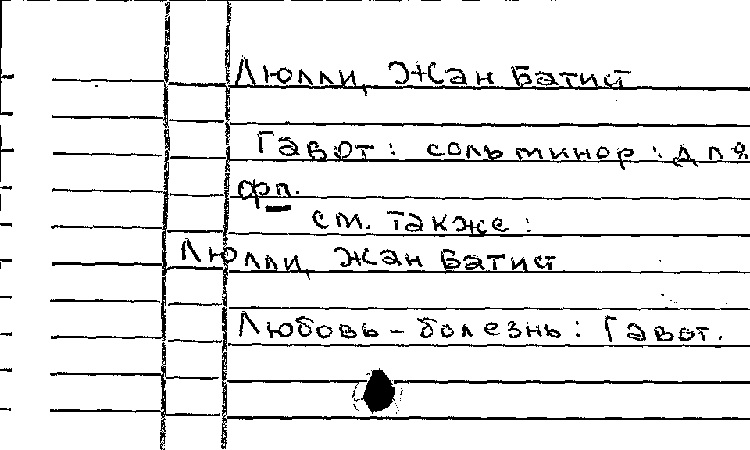 Люлли, Жан Батист
Гавот: соль минор: для
фп.
см. также:
Люлли, Жан Батист
Любовь - болезнь: Гавот.